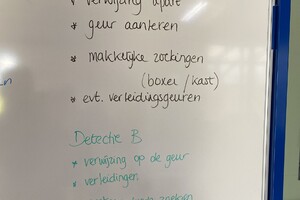 * verwijzing
* geur aanleren
* makkelijke zoekingen
(boxen / kast)
* evt. verleidingsgeuren
Detectie B
* verwijzing op de geur
* verleidingen